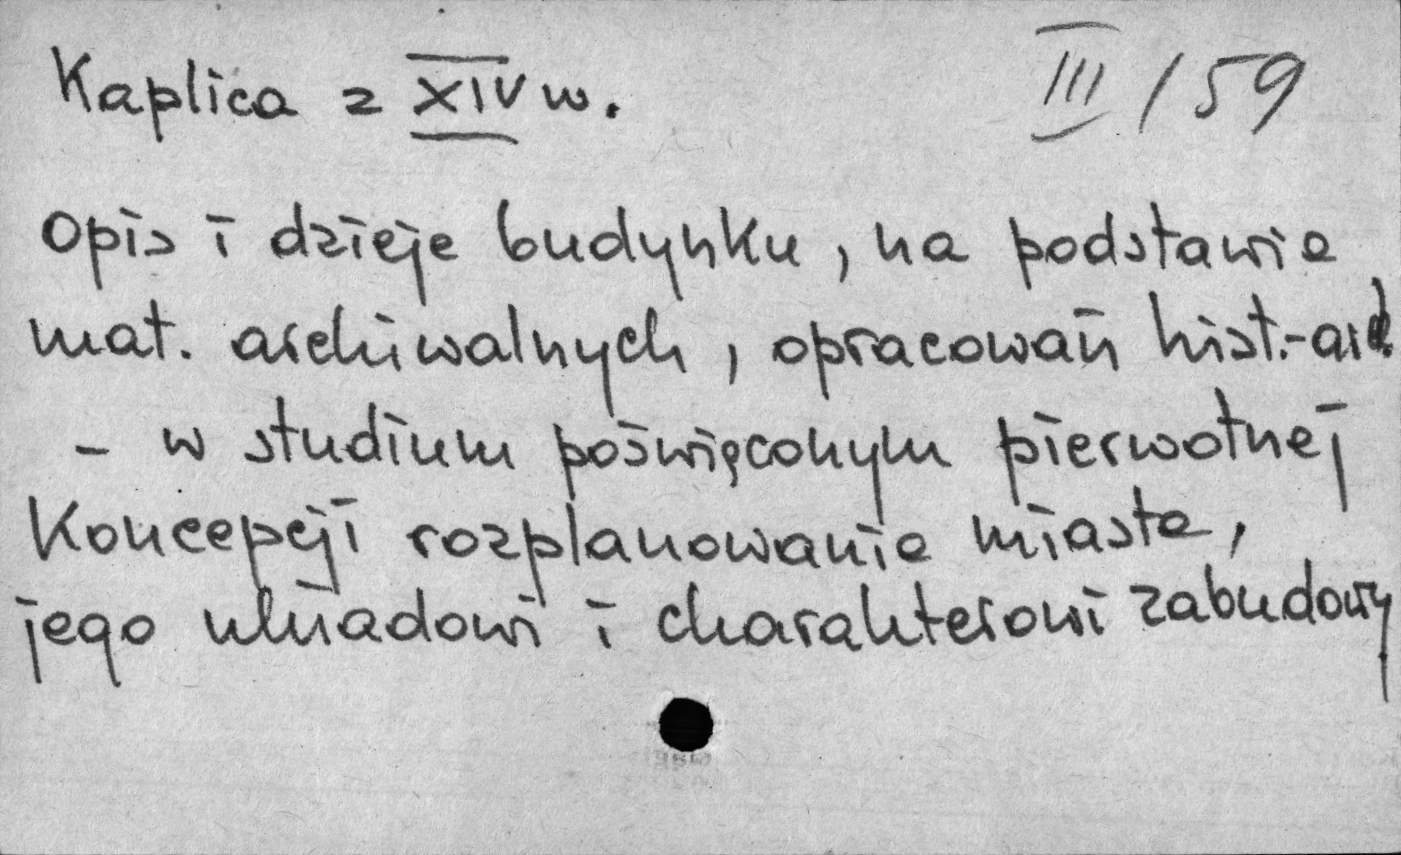 Kaplica z XIV w. III/59
Opis i dzieje budynku, na podstawie
mat. archiwalnych, opracowań hist.-arch.
- w studium poświęconym pierwotnej
koncepcji rozplanowania miasta,
jego układowi i charakterowi zabudowy